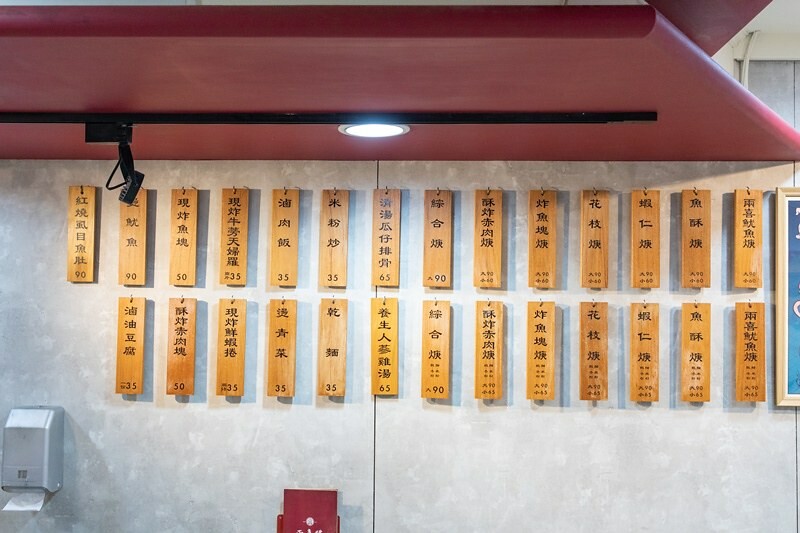 兩喜魷魚焿 大90 小60
魚酥焿 大90 小60
蝦仁焿 大90 小60
花枝焿 大90 小60
炸魚塊焿 大90 小60
酥炸赤肉焿 大90 小60
綜合焿 大90
清湯瓜仔排骨 65
米粉炒 35
滷肉飯 35
現炸牛蒡天婦羅 35
現炸魚塊 50
魷魚 90
紅燒虱目魚肚 90
兩喜魷魚焿
魚酥焿 大90 小65
蝦仁焿 大90 小65
花枝焿 大90 小65
炸魚塊焿 大90 小65
酥炸赤肉焿 大90 小65
綜合焿 大90
養生人蔘雞湯 65
乾麵 35
燙青菜 35
現炸鮮蝦捲 35
酥炸赤肉塊 50
滷油豆腐 35